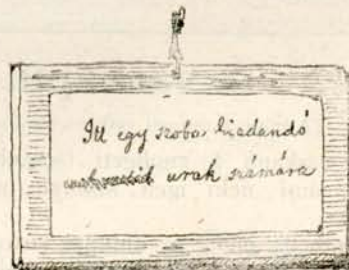 Itt egy szoba kiadandó
urak számára